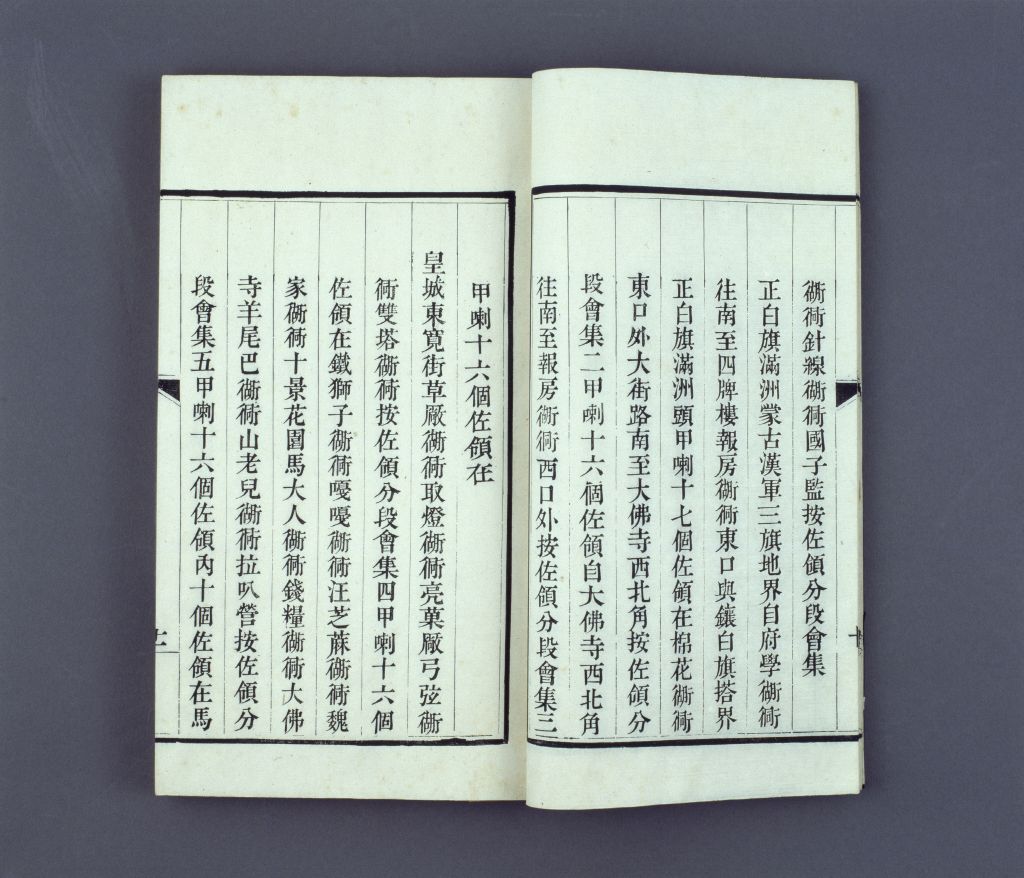 衚衕針線衚衕國子監按佐領分段會集
正白旗滿洲蒙古漢軍三旗地界自府學衚衕
往南至四牌樓報房衚衕東口與鑲白旗搭界
正白旗滿洲頭甲喇十七個佐領在棉花衚衕
東口外大街路南至大佛寺西北角按佐領分
段會集二甲喇十六個佐領自大佛寺西北角
往南至報房衚衕西口外按佐領分段會集三
甲喇十六個佐領在
皇城東寬街草厰衚衕取燈衚衕亮菓厰弓弦衚
衕雙塔衚衕按佐領分段會集四甲喇十六個
佐領在鐵獅子衚衕嗄嗄衚衕汪芝蔴衚衕魏
家衚衕十景花園馬大人衚衕錢糧衚衕大佛
寺羊尾巴衚衕山老兒衚衕拉叭營按佐領分
段會集五甲喇十六個佐領內十個佐領在馬